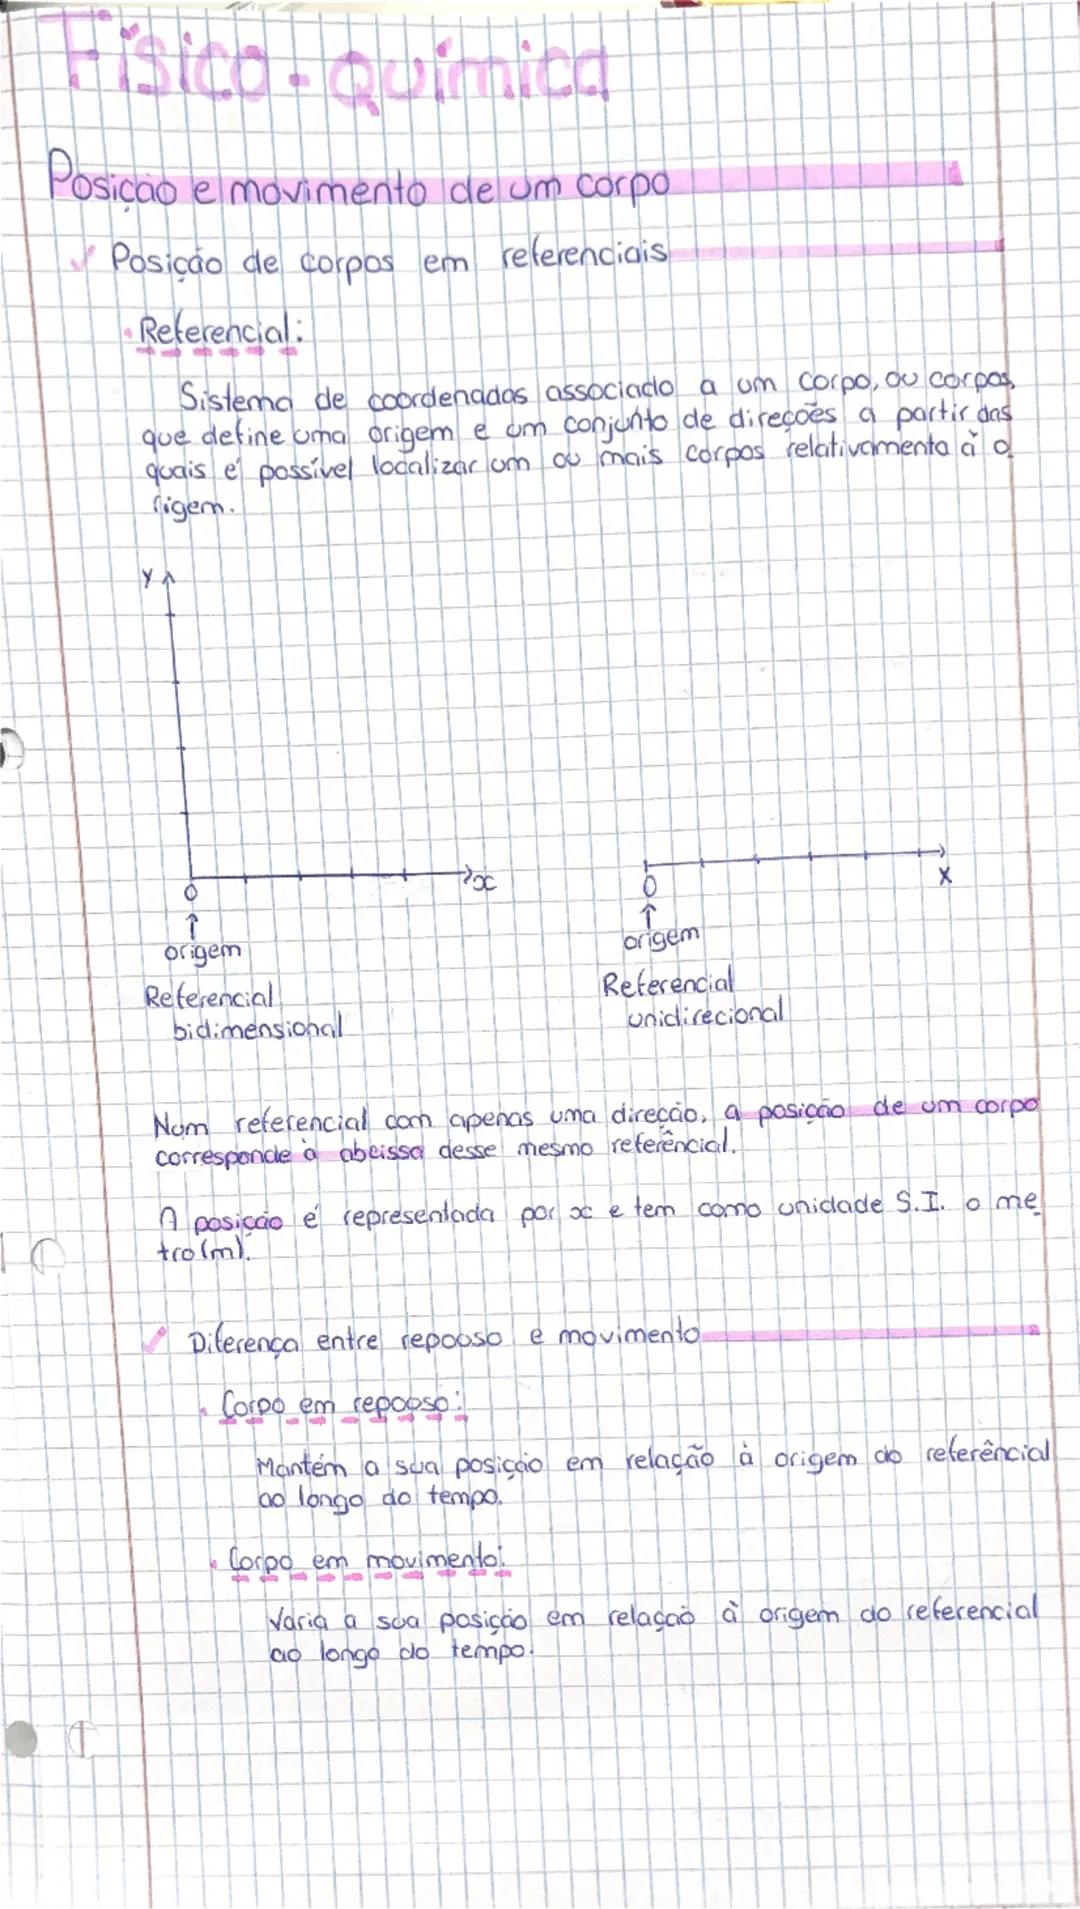 Físico-química
Posição e movimento de um corpo
✓ Posição de corpos em referenciais
• Referencial:
Sistema de coordenadas associado a um corpo, ou corpos,
que define uma origem e um conjunto de direções a partir das
quais é possível localizar um ou mais corpos relativamento à o
rigem.
Y
x
x
0
0
↑
↑
origem
origem
Referencial
bidimensional
Referencial
unidirecional
Num referencial com apenas uma direção, a posição de um corpo
corresponde à abcissa desse mesmo referêncial.
A posição é representada por x e tem como unidade S.I. o me
tro (m).
✓ Diferença entre repouso e movimento
• Corpo em repouso:
Mantém a sua posição em relação à origem do referêncial
ao longo do tempo.
• Corpo em movimento:
Varia a sua posição em relação à origem do referencial
ao longo do tempo.